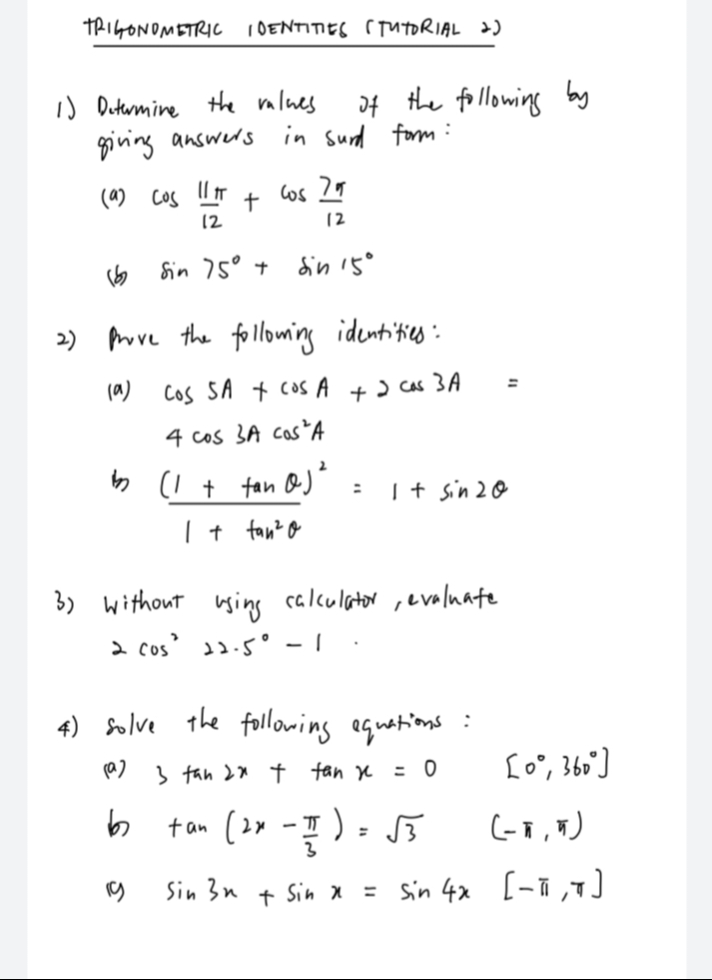 TRIGONOMETRIC IDENTITIES (TUTORIAL 2)
1) Determine the values of the following by
giving answers in surd form:
(a) cos 11π/12 + cos 7π/12
(b) sin 75° + sin 15°
2) Prove the following identities:
(a) cos 5A + cos A + 2 cos 3A =
4 cos 3A cos²A
b) (1 + tan θ)² / 1 + tan²θ = 1 + sin 2θ
3) without using calculator, evaluate
2 cos² 22.5° - 1.
4) solve the following equations:
(a) 3 tan 2x + tan x = 0 [0°, 360°]
b) tan (2x - π/3) = √3 (-π, π)
(c) sin 3x + sin x = sin 4x [-π, π]